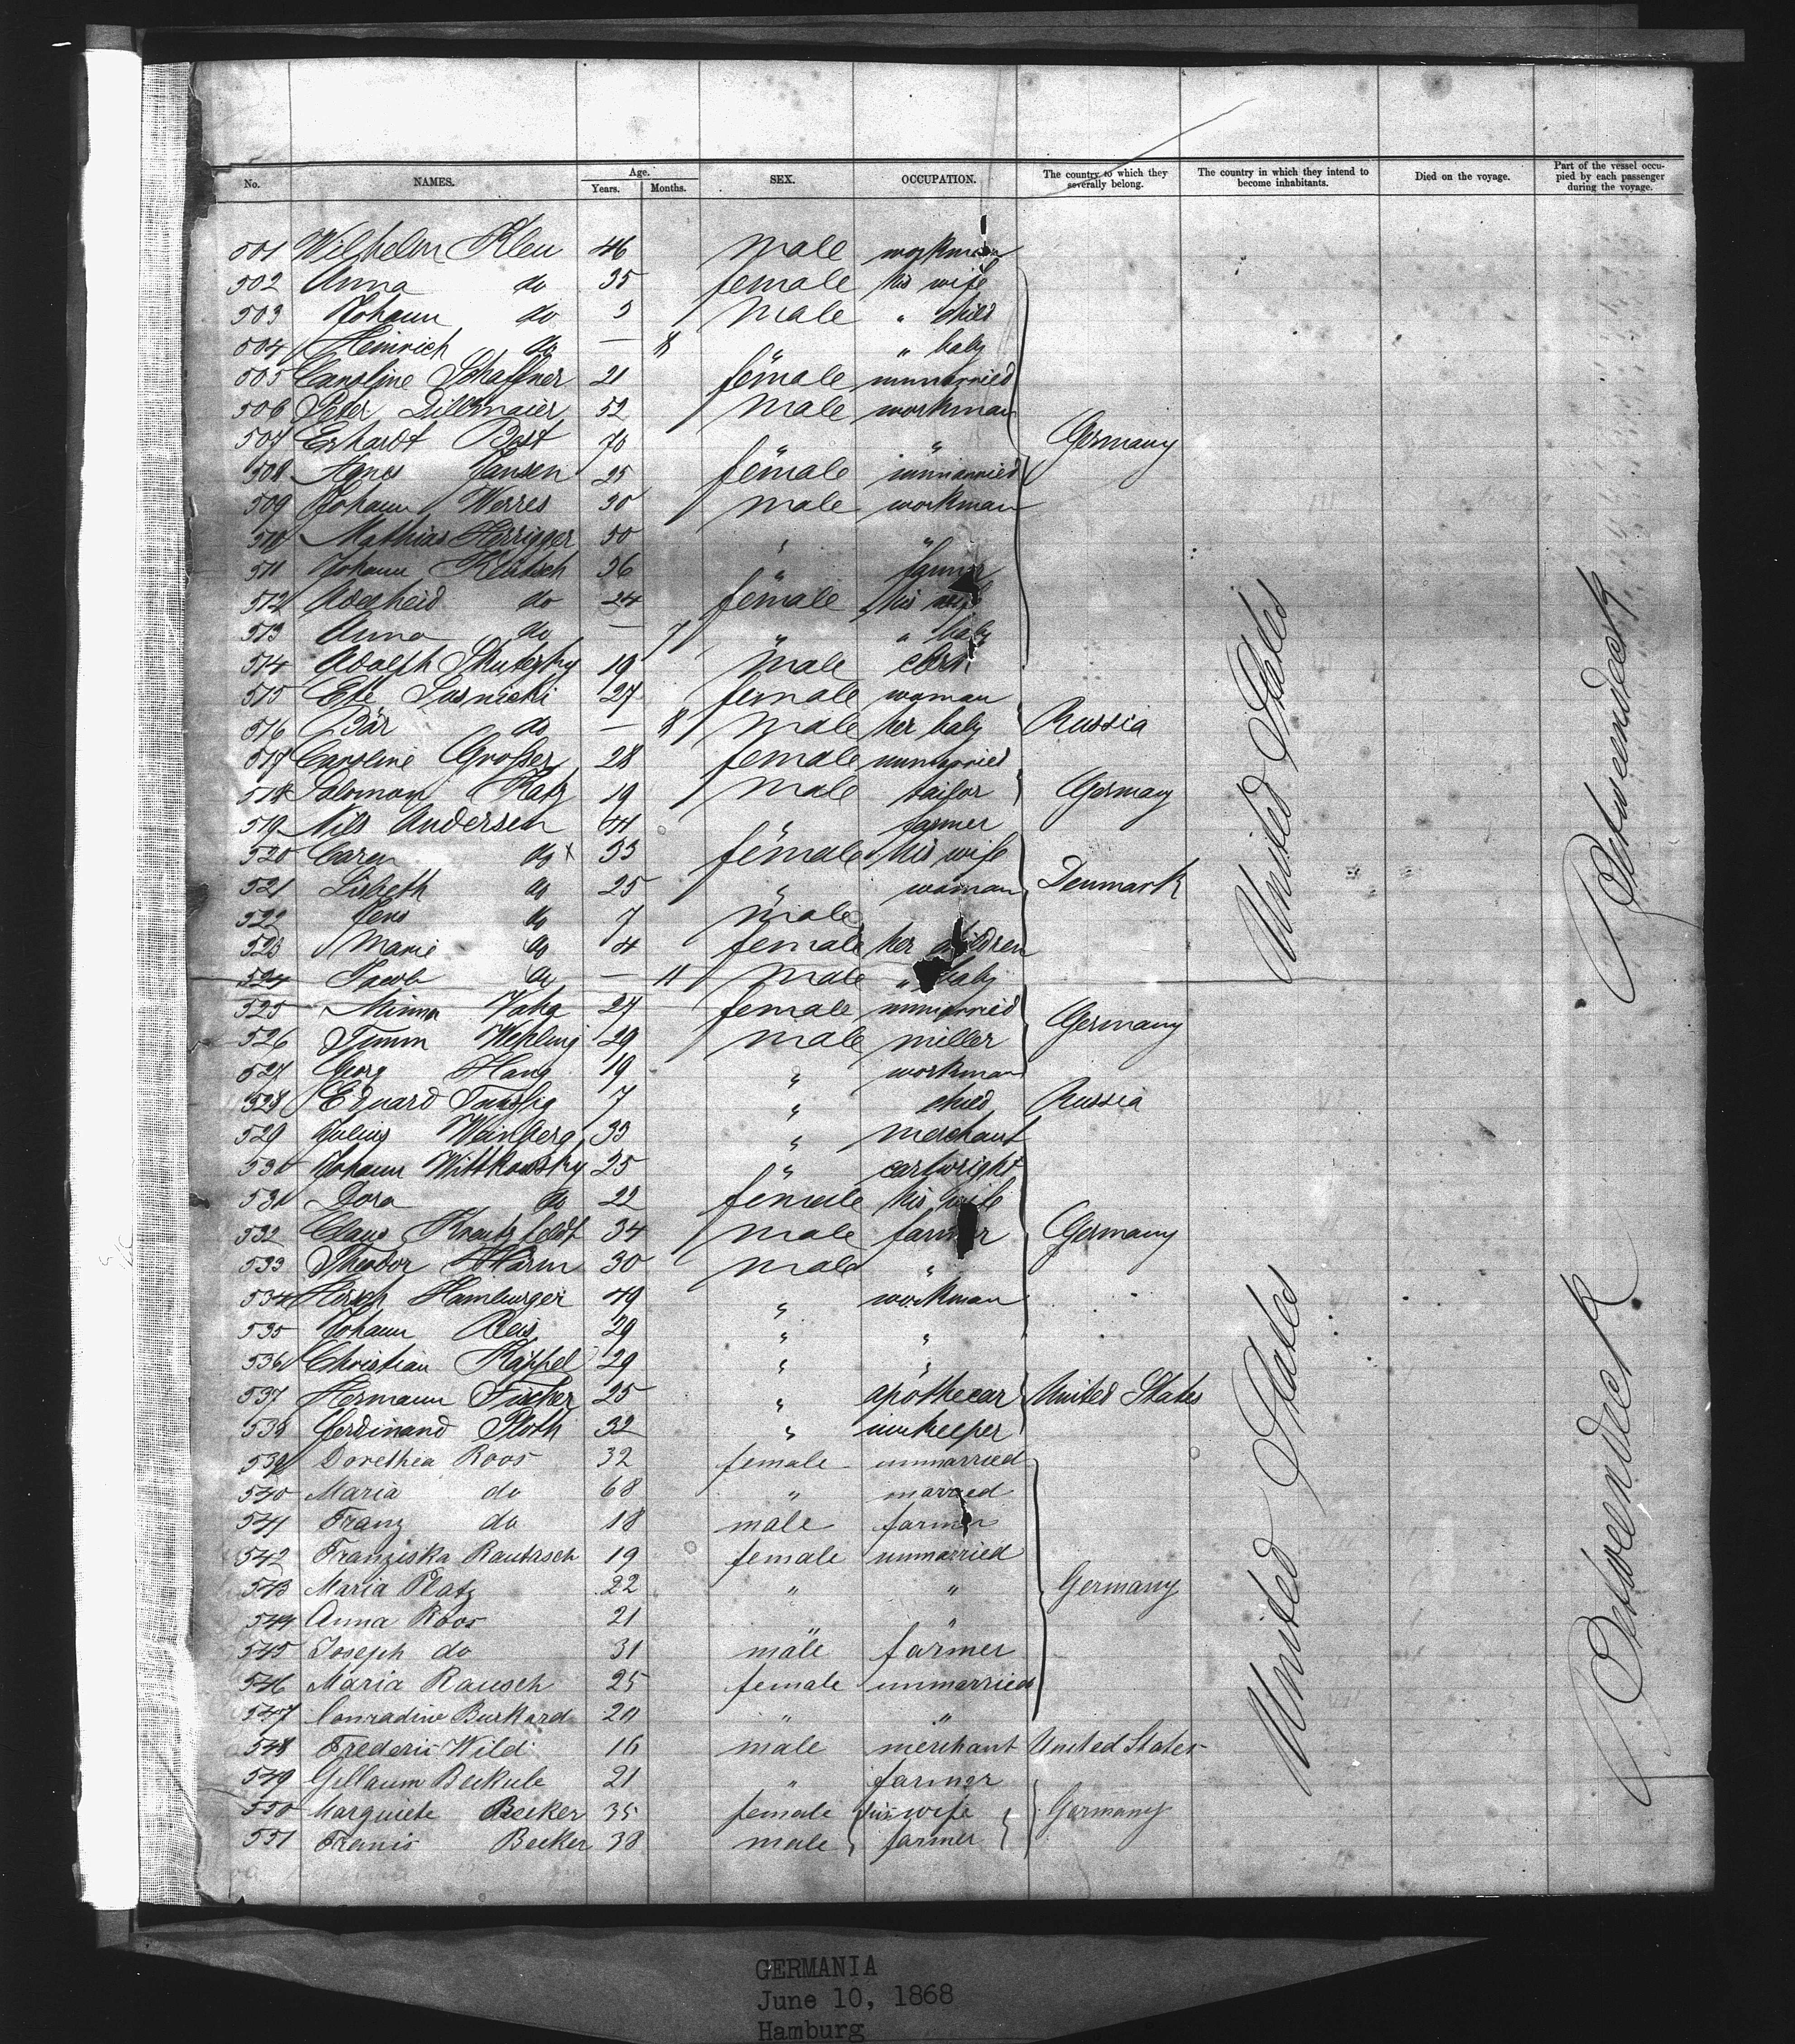 No. NAMES. Age. Years. Months. SEX. OCCUPATION. The country to which they severally belong. The country in which they intend to become inhabitants. Died on the voyage. Part of the vessel occupied by each passenger during the voyage.
501 Wilhelm Kleu 46 male workman
502 Anna do 35 female his wife
503 Johann do 3 male " child
504 Heinrich do — 8 " " baby
505 Caroline Schaffner 21 female unmarried
506 Peter Dillmaier 52 male workman
507 Erhardt Bast 70 " " Germany
508 Agnes Jansen 25 female unmarried
509 Johann Werres 30 male workman
510 Mathias Herrigger 50 " "
511 Johann Klütsch 36 " farmer
512 Adelheid do 24 female his wife
513 Anna do — 7 " " baby
514 Adolph 19 male clerk
515 Ette 27 female woman
516 Bär do — 8 male her baby Russia
517 Caroline Großer 28 female unmarried
518 Salomon Katz 19 male tailor Germany
519 Nils Andersen 41 " farmer
520 Caren do x 33 female his wife
521 Lisbeth do 25 " woman Denmark
522 Jens do 7 male
523 Marie do 4 female her children
524 Jacob do — 11 male " baby
525 Minna 24 female unmarried Germany
526 Timm Wehling 29 male miller
527 Georg Hang 19 " workman
528 Eduard 7 " child Russia
529 Julius Weinberg 33 " merchant
530 Johann Wittkowsky 25 " cartwright
531 Dora do 22 female his wife
532 Claus Krautzfeldt 34 male farmer Germany
533 Theodor 30 male "
534 Hirsch Hamburger 49 " workman
535 Johann Reis 29 " "
536 Christian Käppel 29 " "
537 Hermann Fischer 25 " apothecar United States
538 Ferdinand Ploth 32 " innkeeper
539 Dorethea Roos 32 female unmarried
540 Maria do 68 " married
541 Franz do 18 male farmer
542 Franziska Rautasch 19 female unmarried
543 Maria Platz 22 " " Germany
544 Anna Roos 21 " "
545 Joseph do 31 male farmer
546 Maria Rausch 25 female unmarried
547 Conradine Burkard 20 " "
548 Frederic Wild 16 male merchant United States
549 Gillaum Beckule 21 " farmer
550 Marguiete Becker 35 female his wife Germany
551 Franis Becker 38 male farmer
United States
United States
Betweendeck
Betweendeck
GERMANIA
June 10, 1868
Hamburg